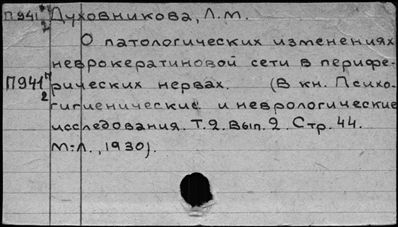 П941 Духовникова, Л.М.
2
О патологических изменениях
неврокератиновой сети в перифе-
П941 рических нервах. (В кн. Психо-
2
гигиенические и неврологические
исследования. Т.2. Вып. 2. Стр. 44.
М.-Л., 1930).